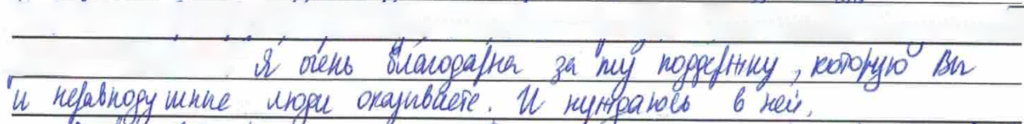 Я очень благодарна за ту поддержку, которую Вы
и неравнодушние люди оказиваете. И нуждаюсь в ней.